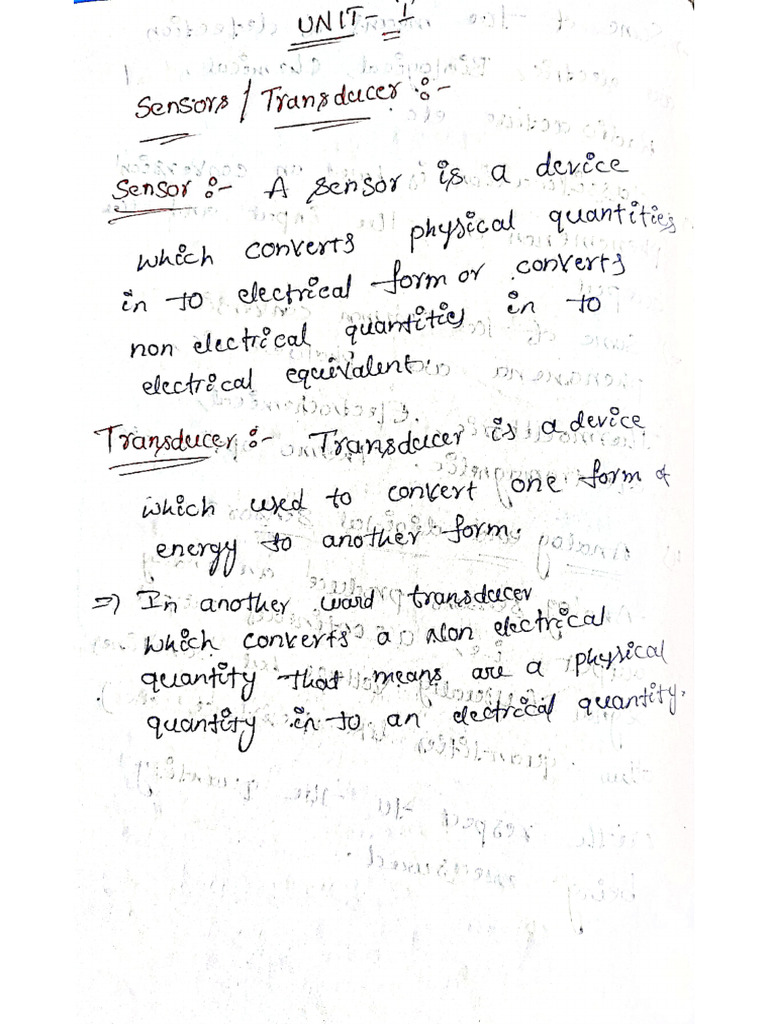 UNIT-1
Sensors / Transducer :-
Sensor :- A sensor is a device
which converts physical quantities
in to electrical form or converts
non electrical quantities in to
electrical equivalent.
Transducer :- Transducer is a device
which used to convert one form of
energy to another form.
⇒) In another ward transducer
which converts a Non electrical
quantity that means are a physical
quantity in to an electrical quantity.